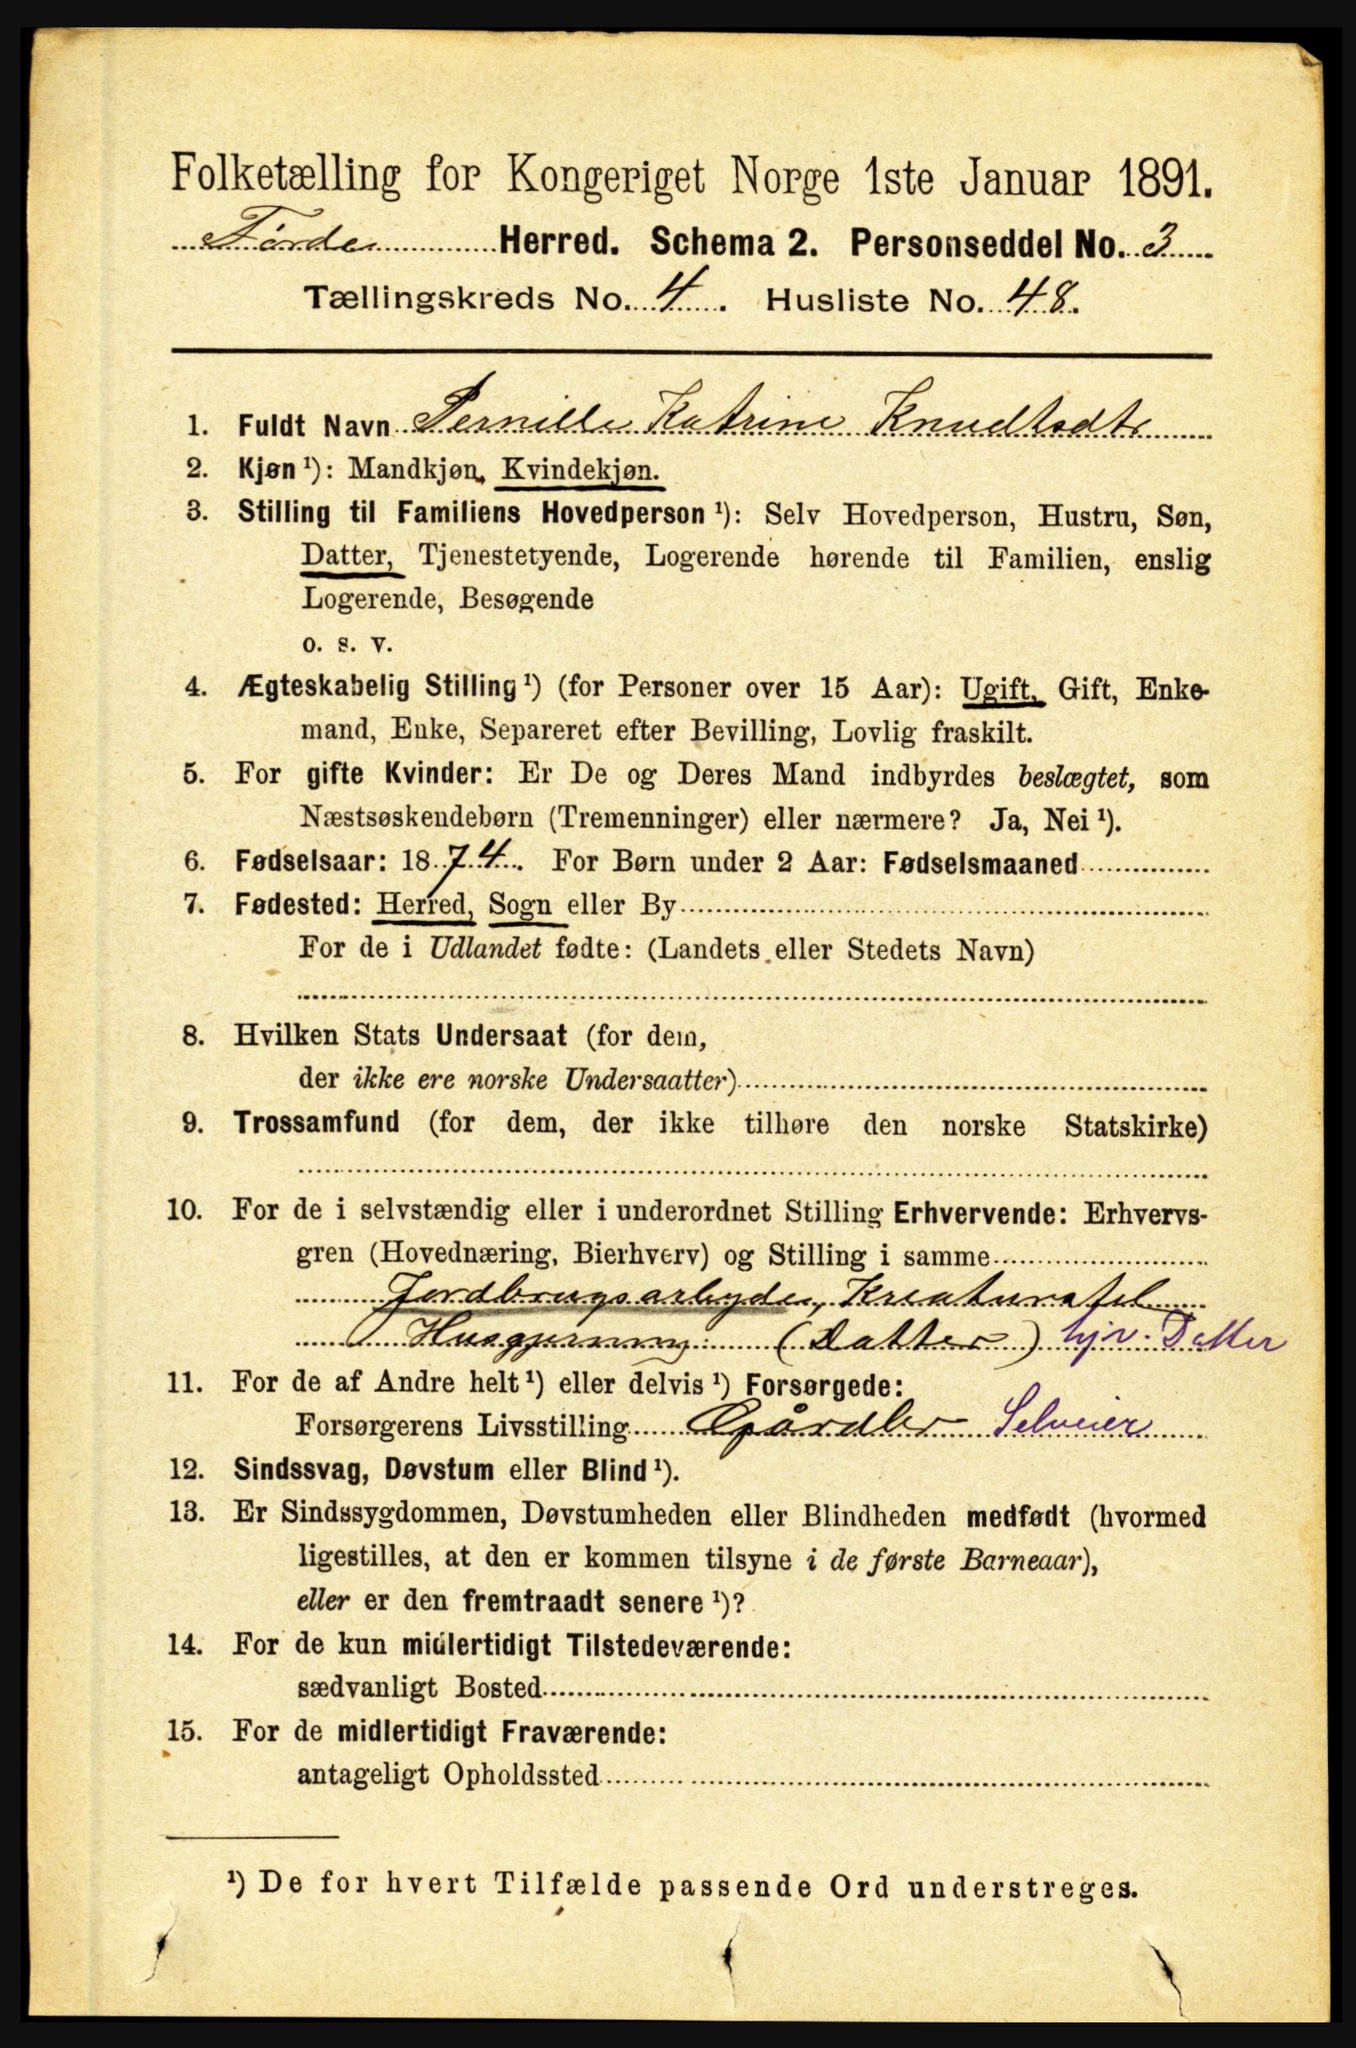 Folketælling for Kongeriget Norge 1ste Januar 1891.
Førde Herred. Schema 2. Personseddel No. 3
Tællingskreds No. 4. Husliste No. 48.
1. Fuldt Navn Pernille Katrine Knudtsdtr
2. Kjøn ¹): Mandkjøn, Kvindekjøn.
3. Stilling til Familiens Hovedperson ¹): Selv Hovedperson, Hustru, Søn,
Datter, Tjenestetyende, Logerende hørende til Familien, enslig
Logerende, Besøgende
o. s. v.
4. Ægteskabelig Stilling ¹) (for Personer over 15 Aar): Ugift, Gift, Enke-
mand, Enke, Separeret efter Bevilling, Lovlig fraskilt.
5. For gifte Kvinder: Er De og Deres Mand indbyrdes beslægtet, som
Næstsøskendebørn (Tremenninger) eller nærmere? Ja, Nei ¹).
6. Fødselsaar: 1874. For Børn under 2 Aar: Fødselsmaaned
7. Fødested: Herred, Sogn eller By
For de i Udlandet fødte: (Landets eller Stedets Navn)
8. Hvilken Stats Undersaat (for dem,
der ikke ere norske Undersaatter)
9. Trossamfund (for dem, der ikke tilhøre den norske Statskirke)
10. For de i selvstændig eller i underordnet Stilling Erhvervende: Erhvervs-
gren (Hovednæring, Bierhverv) og Stilling i samme
Jordbrugsarbyde, Kreaturstel
Husgjerning (Datter) hjv. Datter
11. For de af Andre helt ¹) eller delvis ¹) Forsørgede:
Forsørgerens Livsstilling Gårdbr Selveier
12. Sindssvag, Døvstum eller Blind ¹).
13. Er Sindssygdommen, Døvstumheden eller Blindheden medfødt (hvormed
ligestilles, at den er kommen tilsyne i de første Barneaar),
eller er den fremtraadt senere ¹)?
14. For de kun midlertidigt Tilstedeværende:
sædvanligt Bosted
15. For de midlertidigt Fraværende:
antageligt Opholdssted
¹) De for hvert Tilfælde passende Ord understreges.